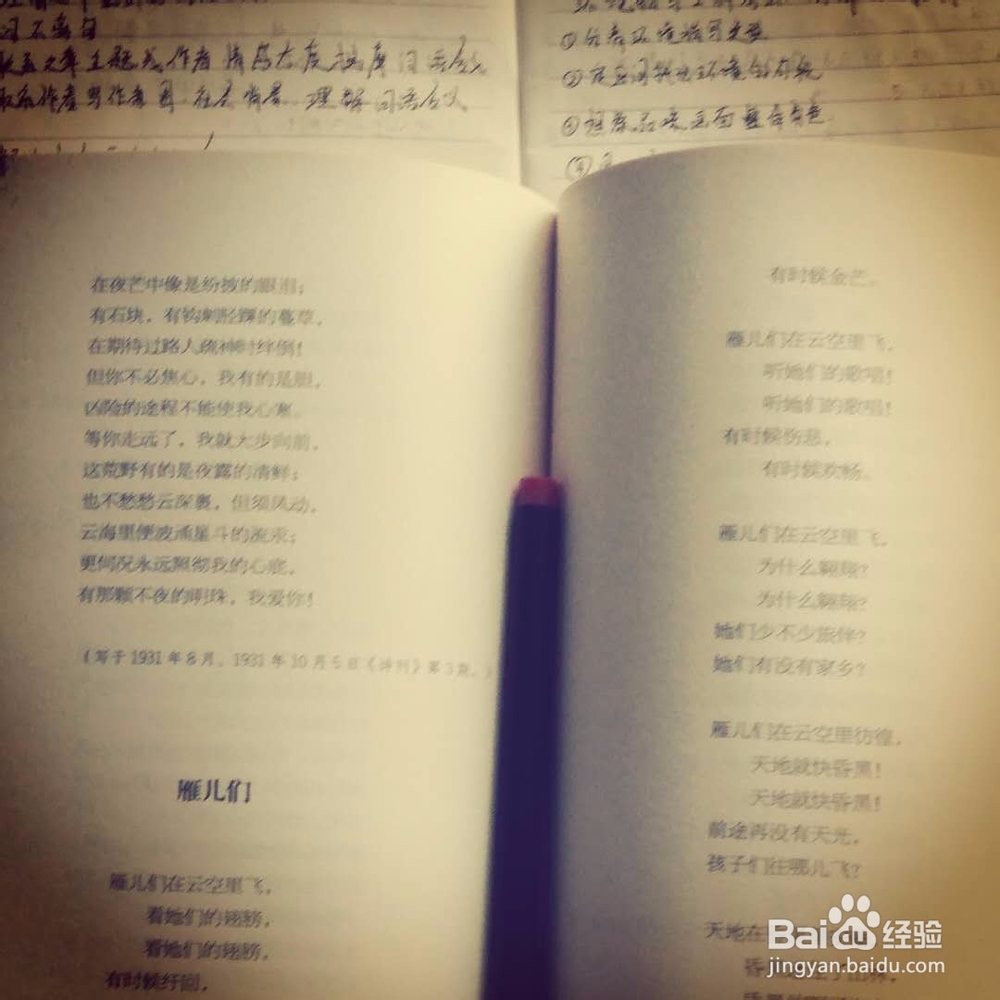 词不离句
作者
理解词语含义
②
③
④
在夜芒中像是纷披的眼泪；
有石块，有钩刺胫踝的蔓草，
在期待过路人疏神时绊倒！
但你不必焦心，我有的是胆，
凶险的途程不能使我心寒。
等你走远了，我就大步向前，
这荒野有的是夜露的清鲜；
也不愁愁云深裹，但须风动，
云海里便波涌星斗的流汞；
更何况永远照彻我的心底，
有那颗不夜的明珠，我爱你！
（写于1931年8月，1931年10月5日《诗刊》第3期。）
雁儿们
雁儿们在云空里飞，
看她们的翅膀，
看她们的翅膀，
有时候纡回，
有时候金芒。
雁儿们在云空里飞，
听她们的歌唱！
听她们的歌唱！
有时候伤悲，
有时候欢畅。
雁儿们在云空里飞，
为什么翱翔？
为什么翱翔？
她们少不少旅伴？
她们有没有家乡？
雁儿们在云空里彷徨，
天地就快昏黑！
天地就快昏黑！
前途再没有天光，
孩子们往哪儿飞？
天地在
昏
Baidu 经验
jingyan.baidu.com